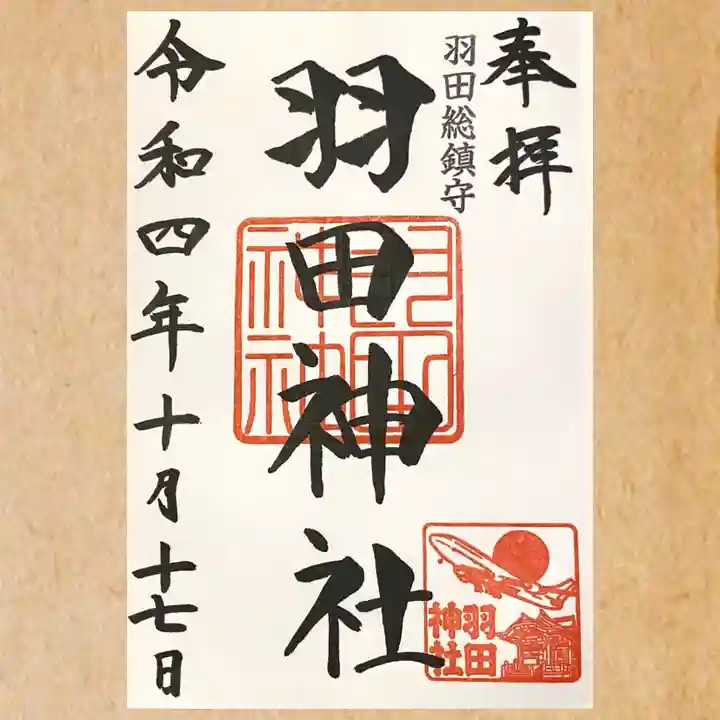 奉拝
羽田総鎮守
羽田神社
令和四年十月十七日
羽田
神社